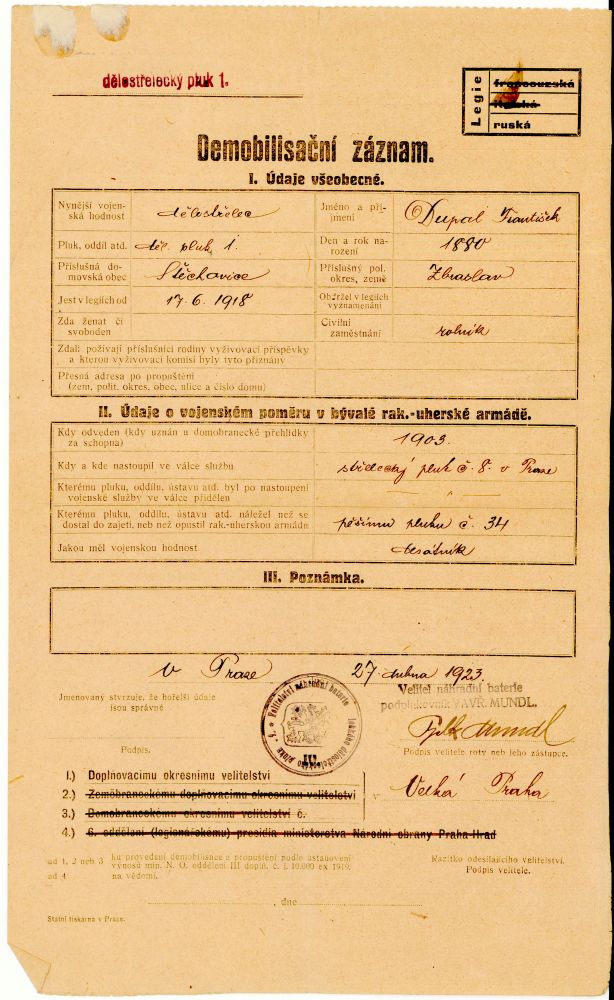 dělostřelecký pluk 1.
Legie
francouzská
italská
ruská
Demobilisační záznam.
I. Údaje všeobecné.
Nynější vojen-
ská hodnost
dělostřelec
Jméno a pří-
jmení
Dupal František
Pluk, oddíl atd.
děl. pluk 1.
Den a rok na-
rození
1880
Příslušná do-
movská obec
Štěchovice
Příslušný pol.
okres, země
Zbraslav
Jest v legiích od
17. 6. 1918
Obdržel v legiích
vyznamenání
Zda ženat či
svoboden
Civilní
zaměstnání
rolník
Zdali požívají příslušníci rodiny vyživovací příspěvky
a kterou vyživovací komisí byly tyto přiznány
Přesná adresa po propuštění
(zem, polit. okres, obec, ulice a číslo domu)
II. Údaje o vojenském poměru v bývalé rak.-uherské armádě.
Kdy odveden (kdy uznán u domobranecké přehlídky
za schopna)
1903.
Kdy a kde nastoupil ve válce službu
střelecký pluk č. 8. v Praze
Kterému pluku, oddílu, ústavu atd. byl po nastoupení
vojenské služby ve válce přidělen
- " -
Kterému pluku, oddílu, ústavu atd. náležel než se
dostal do zajetí, neb než opustil rak.-uherskou armádu
pěšímu pluku č. 34
Jakou měl vojenskou hodnost
desátník
III. Poznámka.
v Praze 27. dubna 1923.
Jmenovaný stvrzuje, že hořejší údaje
jsou správné
Velitel náhradní baterie
podplukovník VAVŘ. MUNDL.
Pplk Mundl
Podpis.
Podpis velitele roty neb jeho zástupce.
1.) Doplňovacímu okresnímu velitelství
2.) Zeměbraneckému doplňovacímu okresnímu velitelství
Velká Praha
3.) Domobraneckému okresnímu velitelství č.
4.) 6. oddělení (legionářskému) presidia ministerstva Národní obrany Praha-Hrad
ad 1, 2 neb 3
ku provedení demobilisace a propuštění podle ustanovení
výnosů min. N. O. oddělení III doplň. č. j. 10.000 ex 1919.
ad 4
na vědomí.
Razítko odesílajícího velitelství.
Podpis velitele.
, dne
Státní tiskárna v Praze.